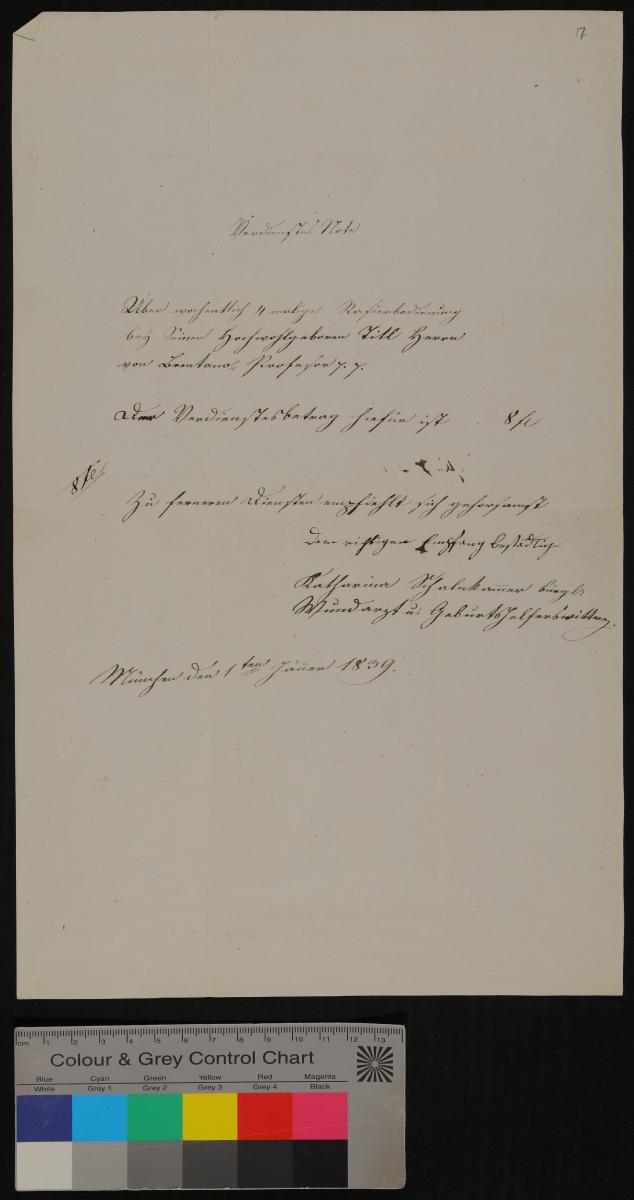 17
Verdienstes Note
Über wochentlich 4 malige Rasierbedienung
bey Seiner Hochwohlgeboren Titl Herrn
von Brentano, Profeßor p. p.
Der Verdienstesbetrag hiefür ist 8 fl
8 fl
Zu ferneren Diensten empfiehlt sich gehorsamst
Den richtigen Empfang bestädtige
Katharina Schalnkamer bürgl:
Wundarzt u: Geburtshelferswittwe.
München den 1ten Jäner 1839.
cm 1 2 3 4 5 6 7 8 9 10 11 12 13
Colour & Grey Control Chart
Blue Cyan Green Yellow Red Magenta
White Grey 1 Grey 2 Grey 3 Grey 4 Black